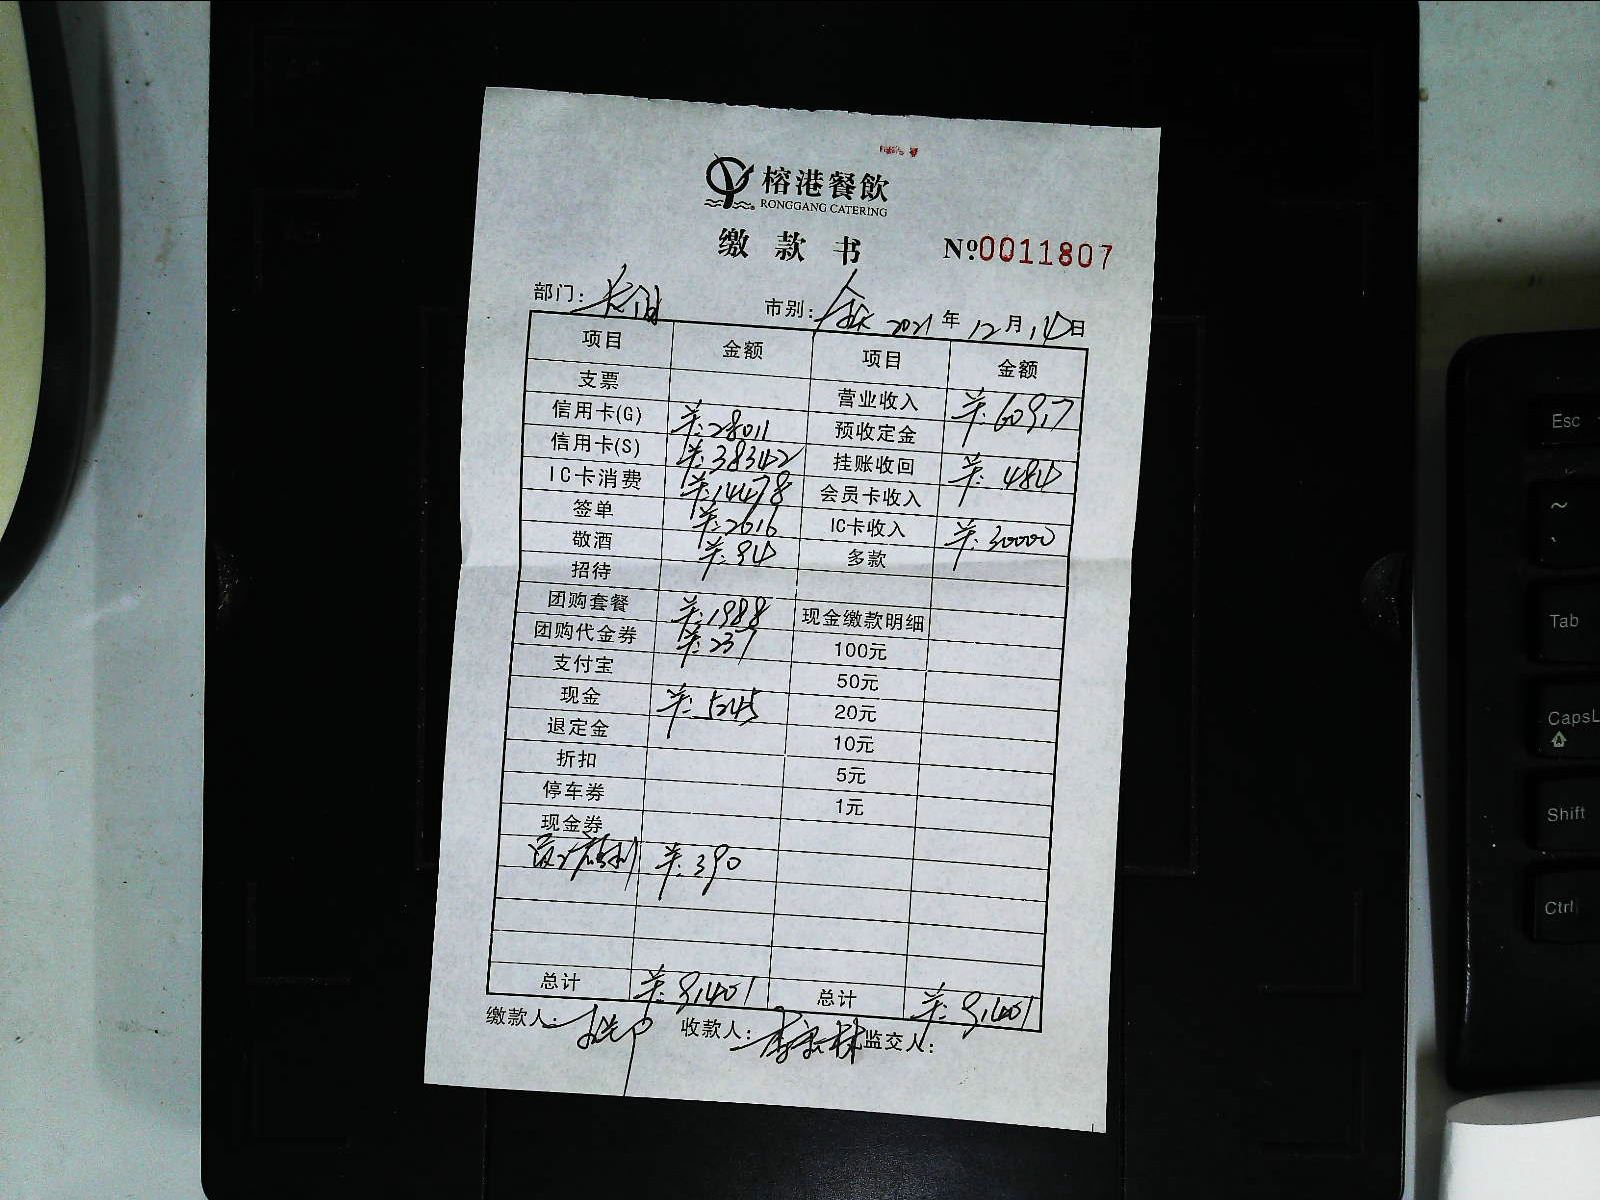 榕港餐飲
RONGGANG CATERING
缴款书 №0011807
部门: 市别: 2021年12月14日
项目 金额 项目 金额
支票 营业收入 ¥:60917
信用卡(G) ¥:28011 预收定金
信用卡(S) ¥:38342 挂账收回 ¥:484
IC卡消费 ¥:14478 会员卡收入
签单 ¥:2616 IC卡收入 ¥:30000
敬酒 ¥:94 多款
招待
团购套餐 ¥:1988 现金缴款明细
团购代金券 ¥:237 100元
支付宝 50元
现金 ¥:5245 20元
退定金 10元
折扣 5元
停车券 1元
现金券
¥:390
总计 ¥:91401 总计 ¥:91401
缴款人: 收款人: 监交人:
Esc
~
Tab
CapsL
Shift
Ctrl